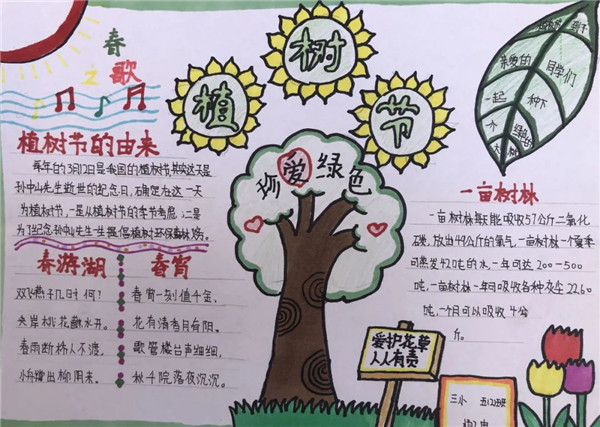 春
之
歌
植
树
节
植树节的由来
每年的3月12日是我国的植树节其实这天是
孙中山先生逝世的纪念日,确定在这一天
为植树节,一是从植树节的季节考虑,二是
为了纪念孙中山先生
春游湖
双飞燕子几时回?
夹岸桃花蘸水开。
春雨断桥人不渡,
小舟撑出柳阴来。
春宵
春宵一刻值千金,
花有清香月有阴。
歌管楼台声细细,
秋千院落夜沉沉。
珍爱绿色
爱护花草
人人有责
亲爱的
同学们
一起
种下
一亩树林
一亩树林每天能吸收57公斤二氧化
碳,放出49公斤的氧气,一亩树林一个夏季
可蒸发42吨的水,一年可达200-500
吨,一亩树林一年可吸收各种灰尘22.60
吨,个月可以吸收4公
斤。
三小 五(2)班